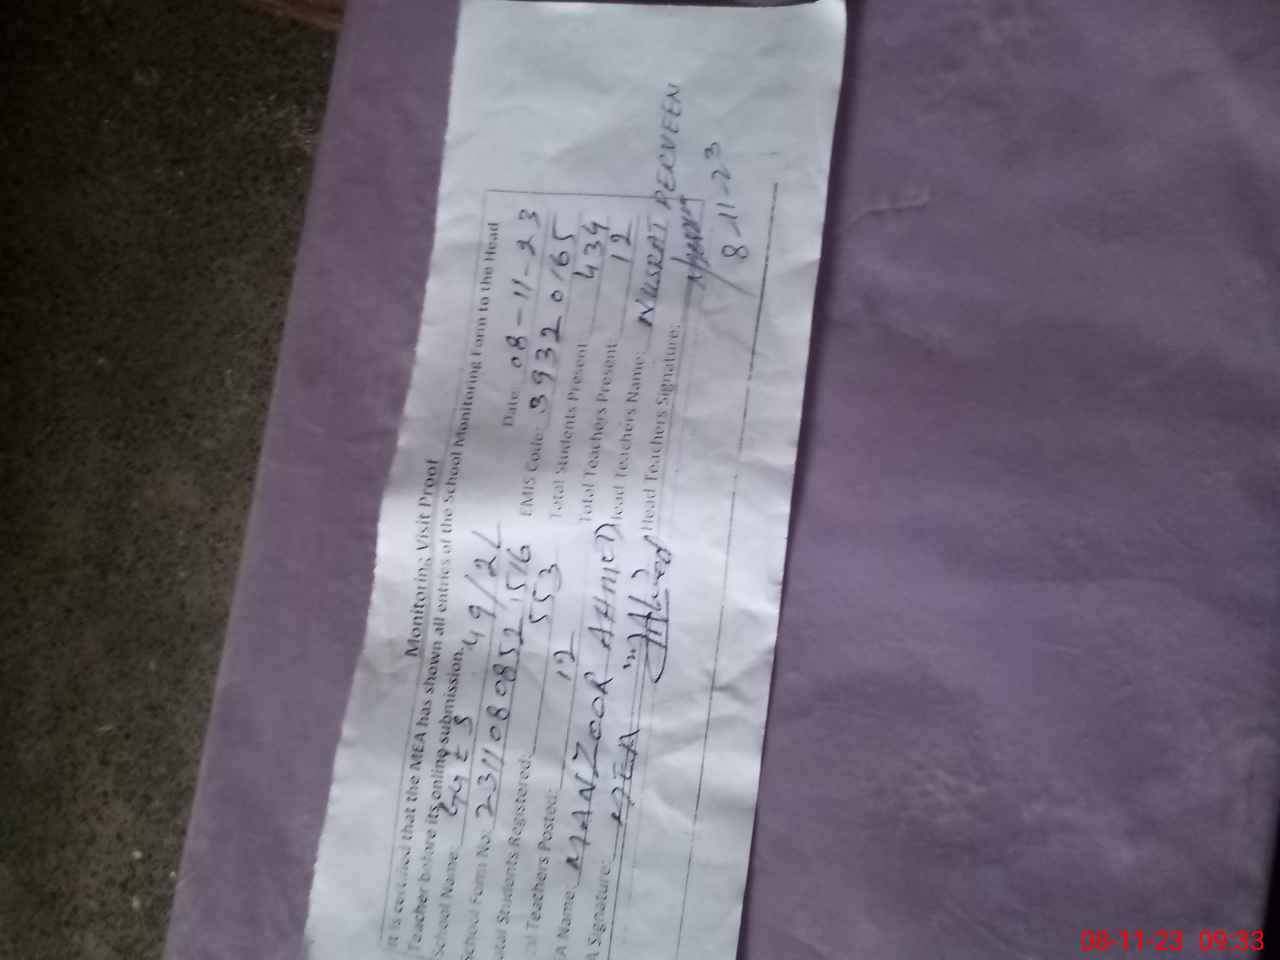 Monitoring Visit Proof
It is certified that the MEA has shown all entries of the School Monitoring Form to the Head
Teacher before its online submission.
School Name: 49/2L Date: 08-11-23
School Form No: 231108 0852 1516 EMIS Code: 39320165
otal Students Registered: 553 Total Students Present 434
al Teachers Posted: 12 Total Teachers Present: 12
A Name: MANZOOR AHMED Head Teachers Name: NUSRAT PERVEEN
A Signature: MEA Head Teachers Signature:
8-11-23
08-11-23 09:33